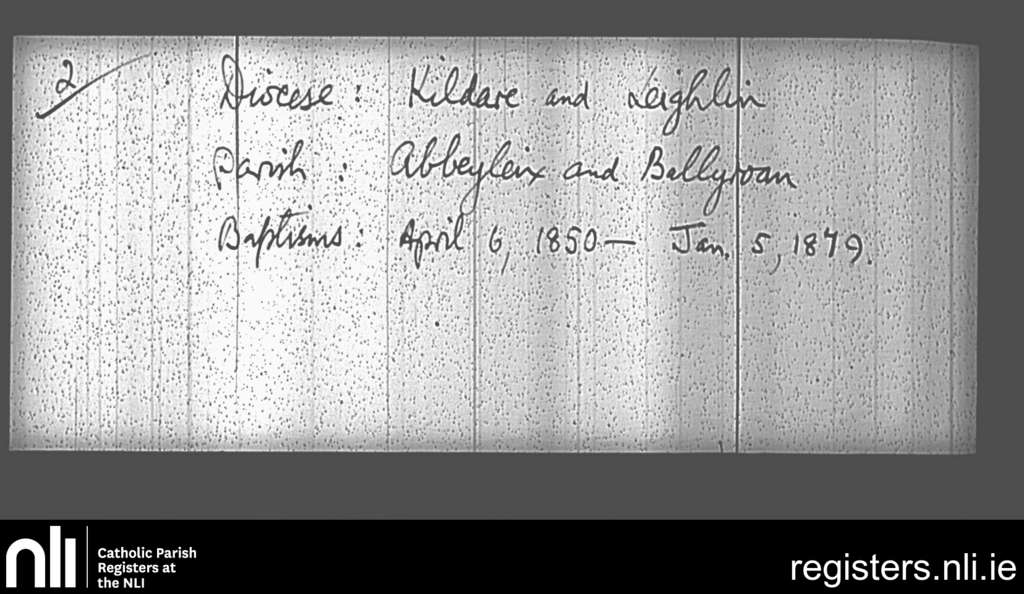 2
Diocese: Kildare and Leighlin
Parish: Abbeyleix and Ballyroan
Baptisms: April 6, 1850— Jan. 5, 1879.
nli
Catholic Parish
Registers at
the NLI
registers.nli.ie